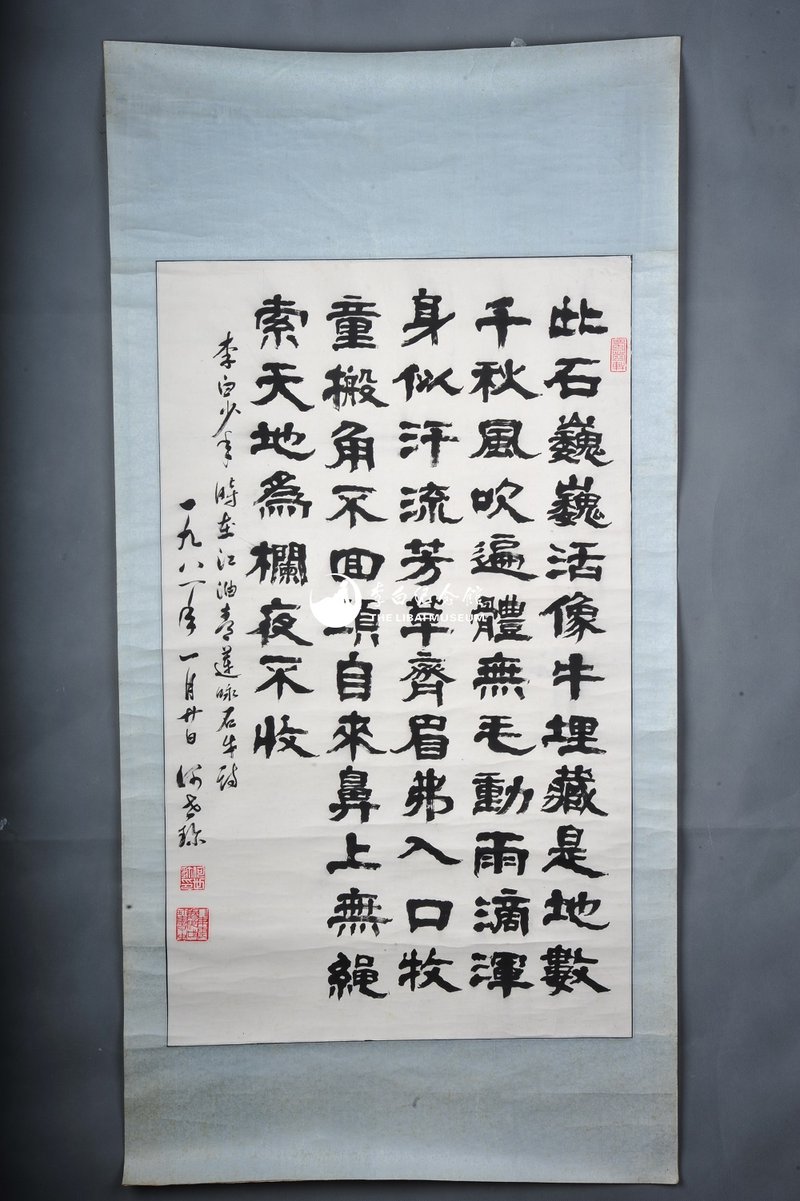 此石巍巍活像牛埋藏是地數
千秋風吹遍體無毛動雨滴渾
身似汗流芳草齊眉弗入口牧
童搬角不回頭自來鼻上無繩
索天地為欄夜不收
李白少年時在江油青蓮咏石牛詩
一九八一年一月廿日
李白纪念馆
THE LIBAI MUSEUM